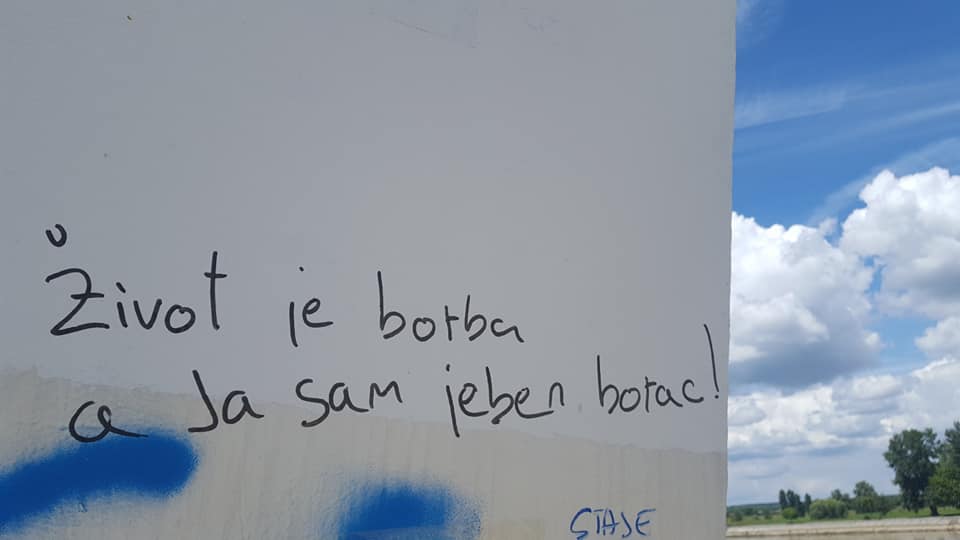 Život je borba
a Ja sam jeben borac!
STAJE